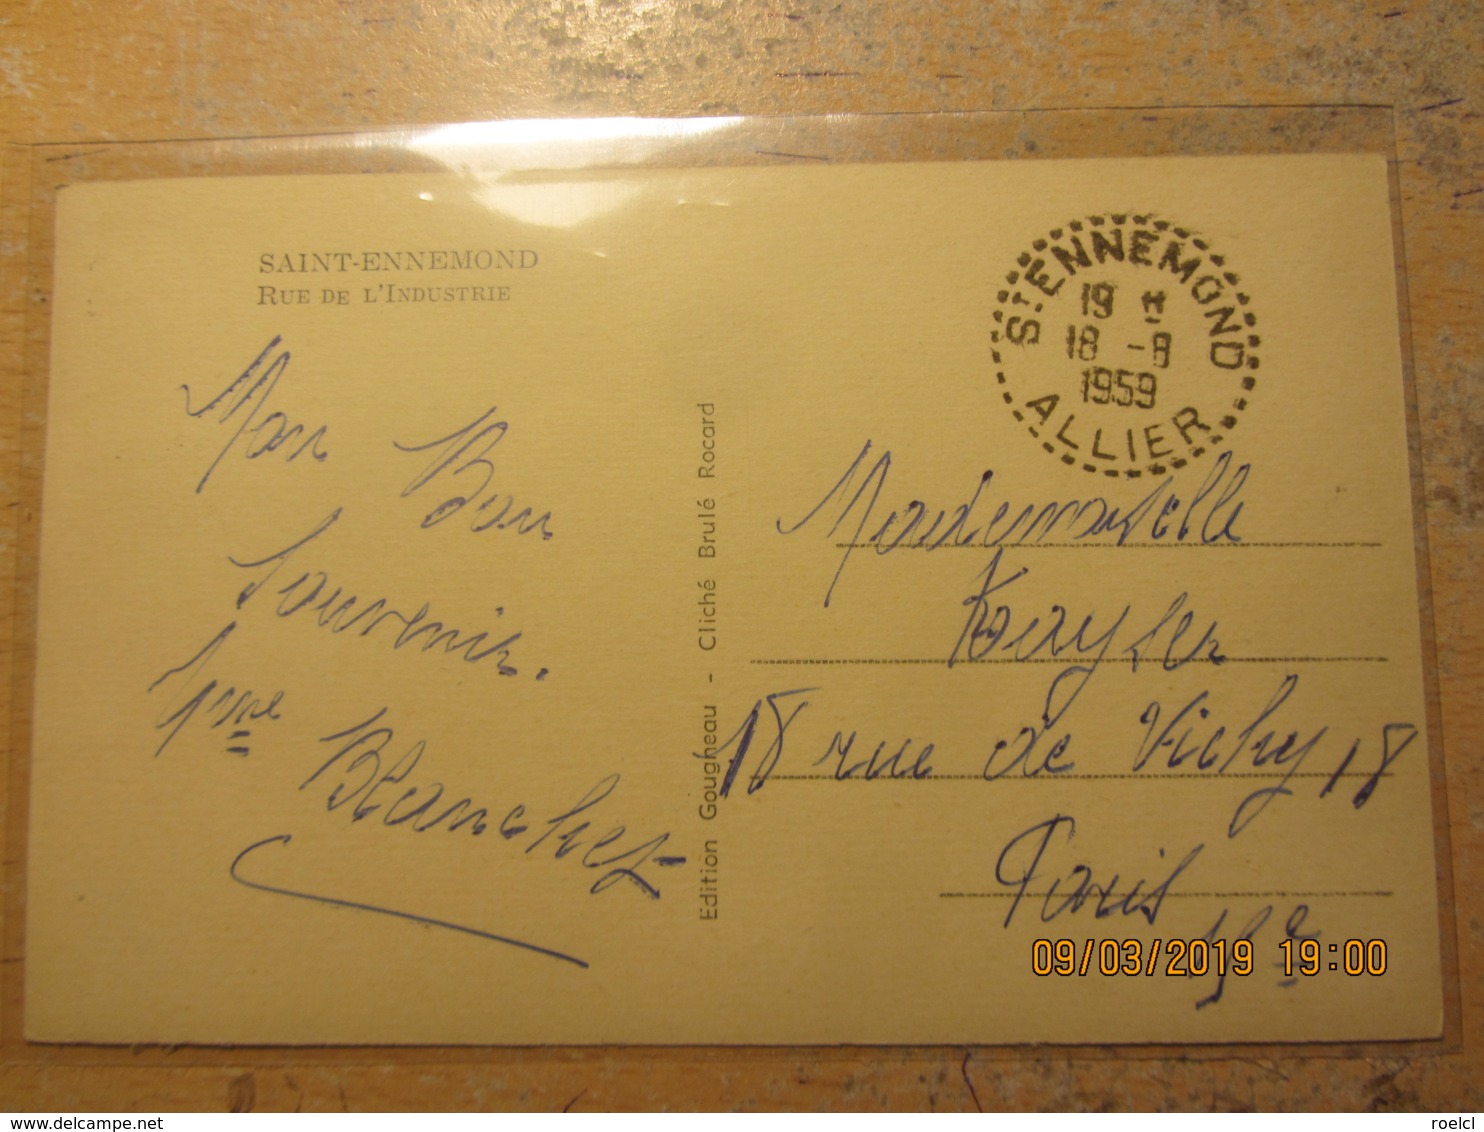 SAINT-ENNEMOND
RUE DE L'INDUSTRIE
Mon Bon
Souvenir.
Mme
Blanchet
Edition Gougheau - Cliché Brulé Rocard
ST ENNEMOND
19 H
18 -8
1959
ALLIER
Mademoiselle
Kayser
18 rue de Vichy, 18
Paris
15e
09/03/2019 19:00
delcampe.net
roelcl